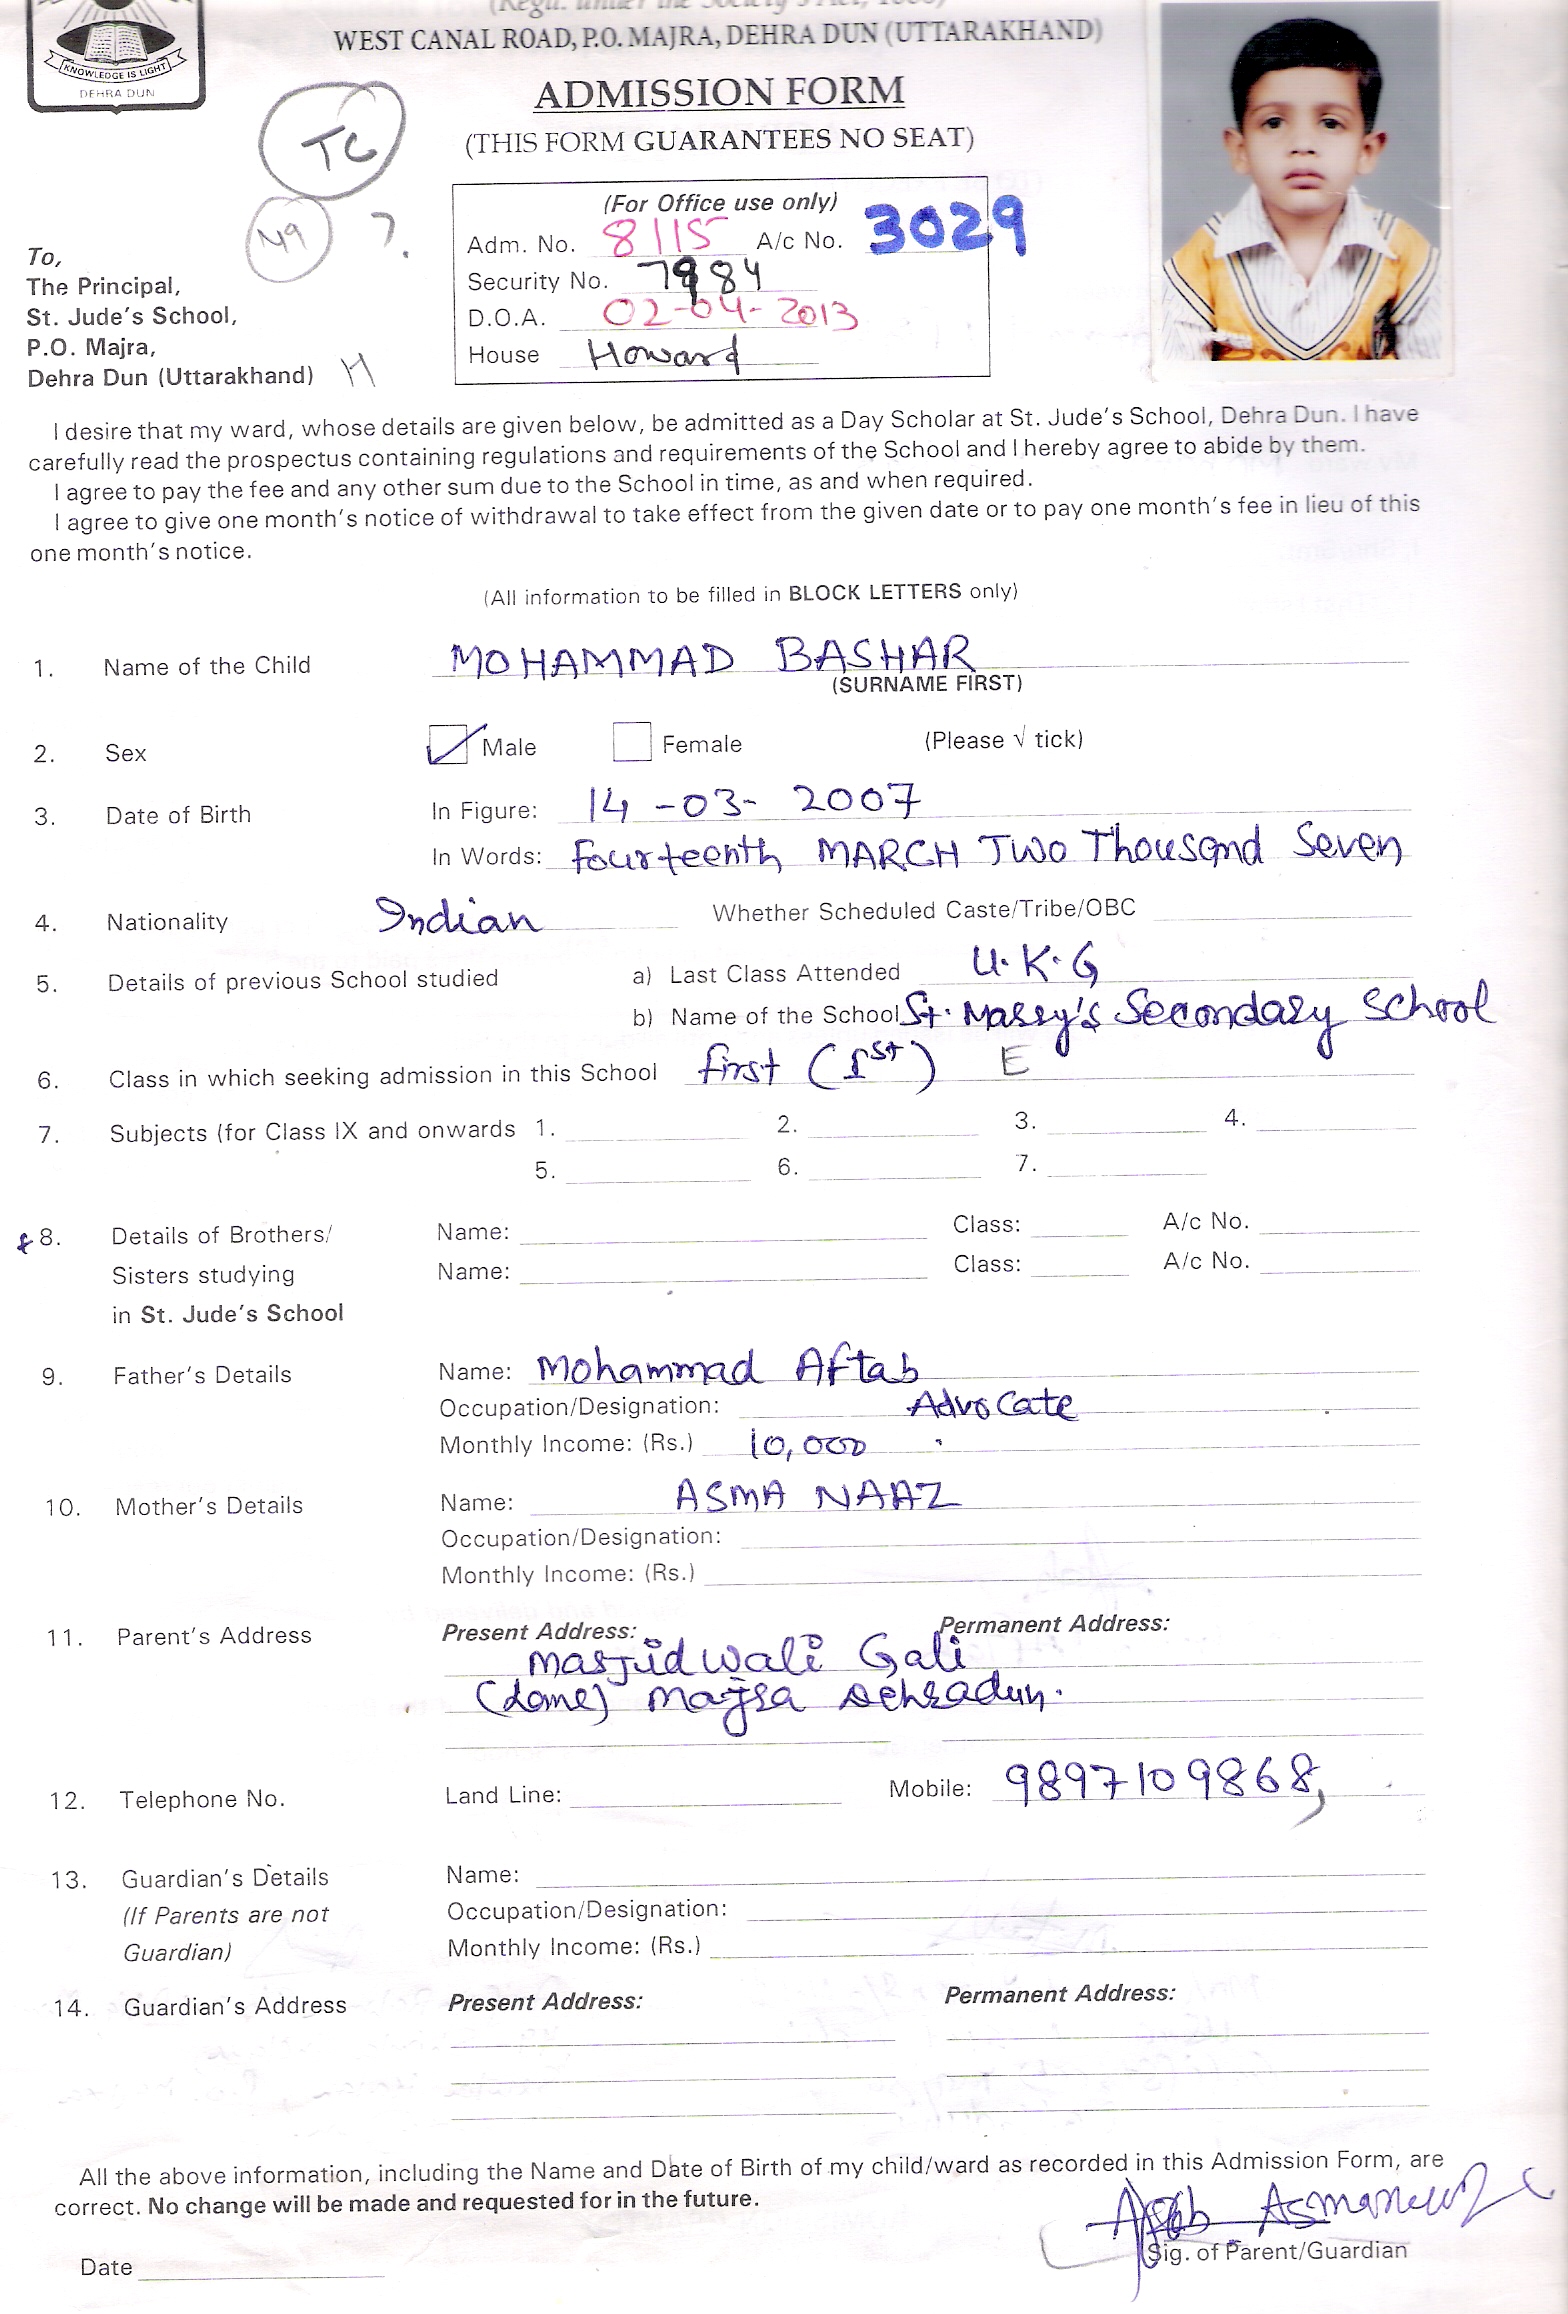 (Regd. under the Society's Act, 1860)
WEST CANAL ROAD, P.O. MAJRA, DEHRA DUN (UTTARAKHAND)
KNOWLEDGE IS LIGHT
DEHRA DUN
ADMISSION FORM
(THIS FORM GUARANTEES NO SEAT)
TC
49 ?
(For Office use only)
Adm. No. 8115 A/c No. 3029
Security No. 7984
D.O.A. 02-04-2013
House Howard
To,
The Principal,
St. Jude's School,
P.O. Majra,
Dehra Dun (Uttarakhand) H
I desire that my ward, whose details are given below, be admitted as a Day Scholar at St. Jude's School, Dehra Dun. I have
carefully read the prospectus containing regulations and requirements of the School and I hereby agree to abide by them.
I agree to pay the fee and any other sum due to the School in time, as and when required.
I agree to give one month's notice of withdrawal to take effect from the given date or to pay one month's fee in lieu of this
one month's notice.
(All information to be filled in BLOCK LETTERS only)
1. Name of the Child MOHAMMAD BASHAR
(SURNAME FIRST)
2. Sex Male Female (Please √ tick)
3. Date of Birth In Figure: 14-03-2007
In Words: Fourteenth MARCH Two Thousand Seven
4. Nationality Indian Whether Scheduled Caste/Tribe/OBC
5. Details of previous School studied a) Last Class Attended U.K.G
b) Name of the School St. Massy's Secondary School
6. Class in which seeking admission in this School first (1st) E
7. Subjects (for Class IX and onwards 1. 2. 3. 4.
5. 6. 7.
8. Details of Brothers/ Name: Class: A/c No.
Sisters studying Name: Class: A/c No.
in St. Jude's School
9. Father's Details Name: Mohammad Aftab
Occupation/Designation: Advocate
Monthly Income: (Rs.) 10,000
10. Mother's Details Name: ASMA NAAZ
Occupation/Designation:
Monthly Income: (Rs.)
11. Parent's Address Present Address: Permanent Address:
Masjid wali Gali
Majra Dehradun.
12. Telephone No. Land Line: Mobile: 9897109868,
13. Guardian's Details Name:
(If Parents are not Occupation/Designation:
Guardian) Monthly Income: (Rs.)
14. Guardian's Address Present Address: Permanent Address:
All the above information, including the Name and Date of Birth of my child/ward as recorded in this Admission Form, are
correct. No change will be made and requested for in the future.
Aftab
Date Sig. of Parent/Guardian